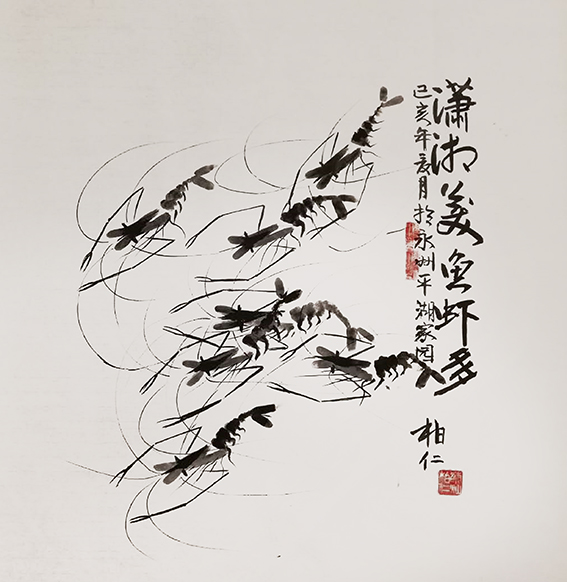 潇湘美鱼虾多
己亥年夏月於永州平湖家园
柏仁